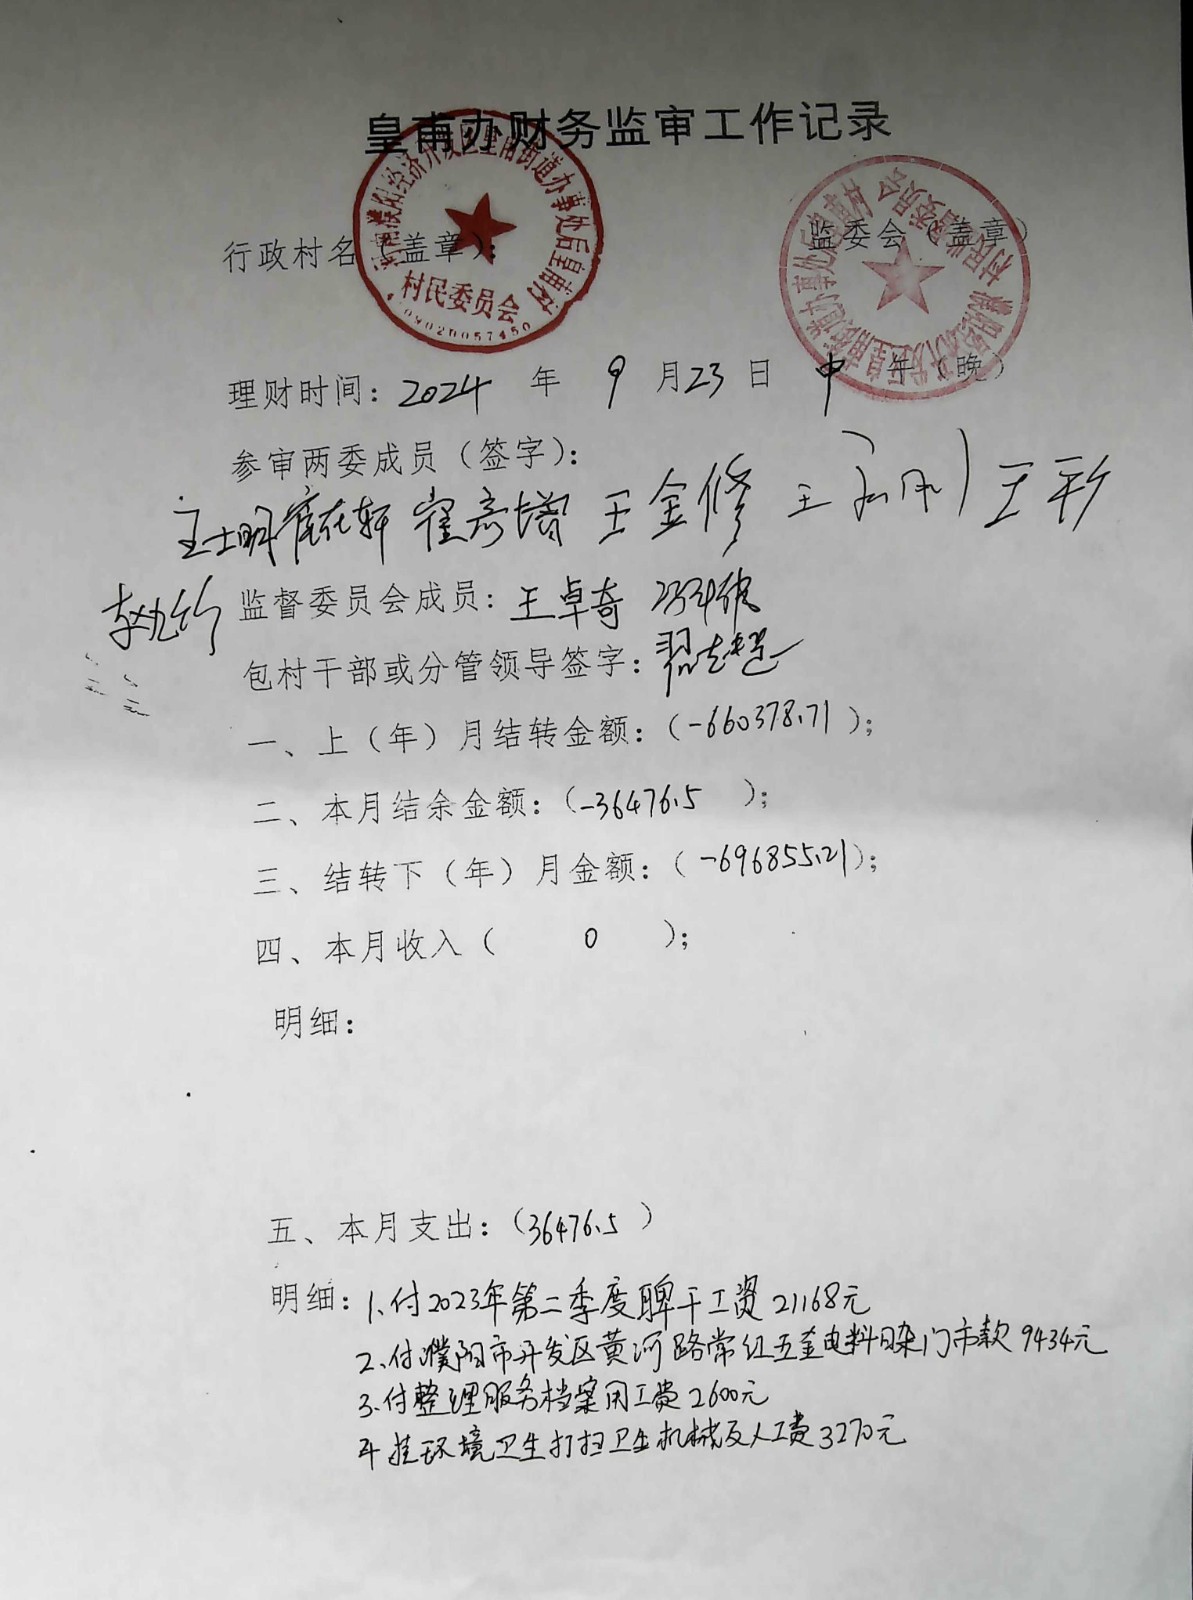 皇甫办财务监审工作记录
行政村名（盖章）：
监委会（盖章）
村民委员会
理财时间：2024 年 9 月 23 日 中 午（晚）
参审两委成员（签字）：
王金修 王彩
监督委员会成员：王卓奇
包村干部或分管领导签字：
一、上（年）月结转金额：（-660378.71）；
二、本月结余金额：（-36476.5 ）；
三、结转下（年）月金额：（-696855.21）；
四、本月收入（ 0 ）；
明细：
五、本月支出：（36476.5 ）
明细：1、付2023年第二季度聘干工资21168元
2、付濮阳市开发区黄河路常红五金电料日杂门市款9434元
3、付整理服务档案用工费2600元
4、挂环境卫生打扫卫生机械及人工费3270元